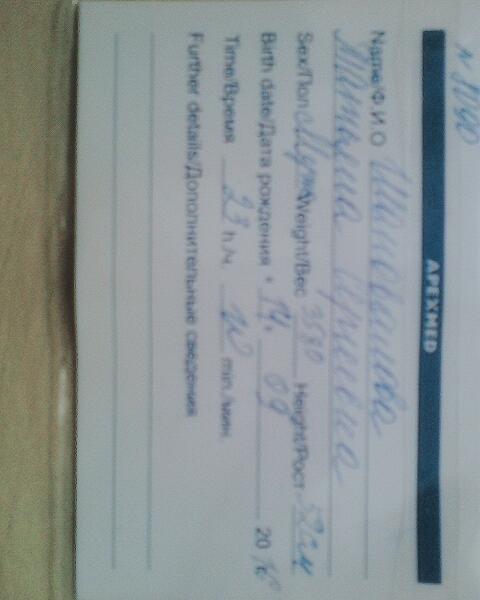 N 8090
APEXMED
Name/Ф.И.О Шаповалова
Татьяна
Sex/Пол Муж Weight/Вес 3590 Height/Рост 52 см
Birth date/Дата рождения 14. 09 20 16
Time/Время 23 h./ч. min./мин.
Further details/Дополнительные сведения